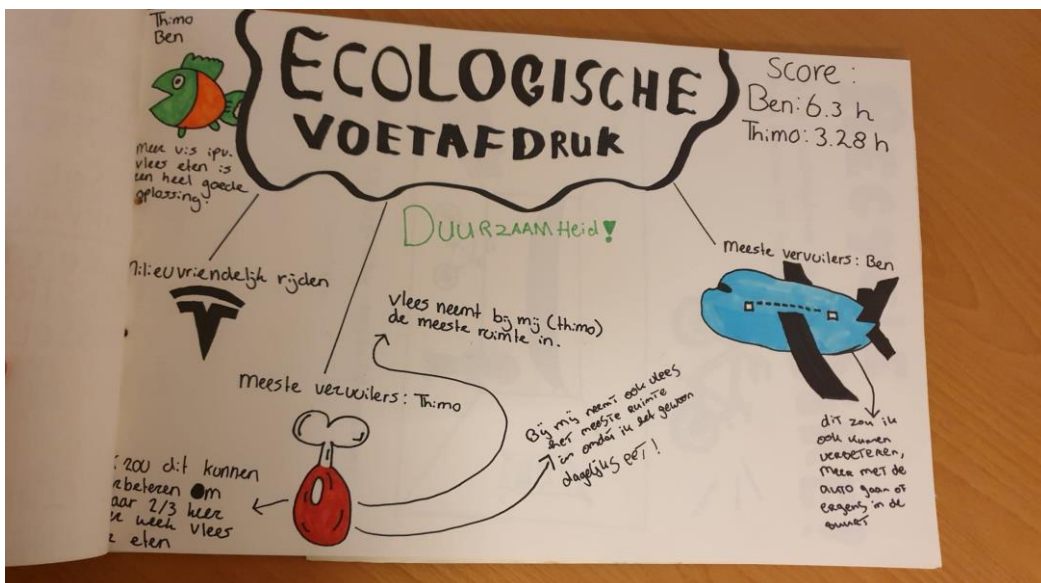 Thimo
Ben
ECOLOGISCHE
VOETAFDRUK
Score:
Ben: 6.3 h
Thimo: 3.28 h
meer vis ipv.
vlees eten is
een heel goede
oplossing!
DUURZAAMHeid!
milieuvriendelijk rijden
meeste vervuilers: Ben
vlees neemt bij mij (thimo)
de meeste ruimte in.
meeste vervuilers: Thimo
Bij mij neemt ook vlees
het meeste ruimte
in omdat ik het gewoon
dagelijks eet!
zou dit kunnen
om
2/3 keer
week vlees
eten
dit zou ik
ook kunnen
verbeteren,
meer met de
auto gaan of
ergens in de
buurt